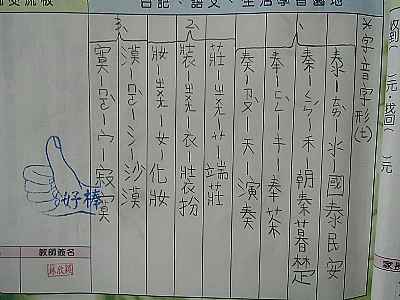 日記、語文、生活學習園地
流板
※字音字形
1、
泰-ㄊㄞˋ-水-國泰民安
秦-ㄑㄧㄣˊ-禾-朝秦暮楚
奉-ㄈㄥˋ-手-奉茶
奏-ㄗㄡˋ-天-演奏
2、
莊-ㄓㄨㄤ-艹-端莊
裝-ㄓㄨㄤ-衣-裝扮
妝-ㄓㄨㄤ-女-化妝
3、
漠-ㄇㄛˋ-氵-沙漠
寞-ㄇㄛˋ-宀-寂寞
好棒
教師簽名
收到( 元,找回( 元